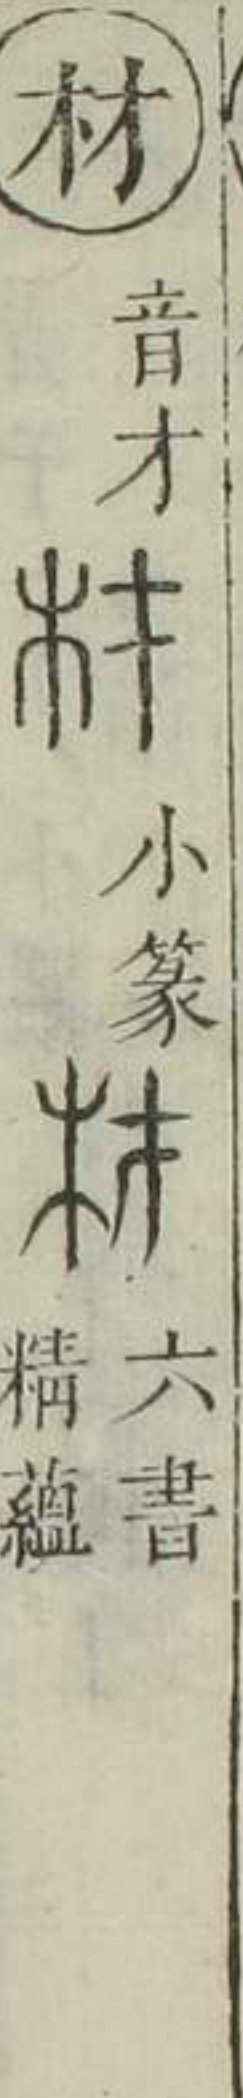 材
音才
材
小篆
材
六書
精蘊